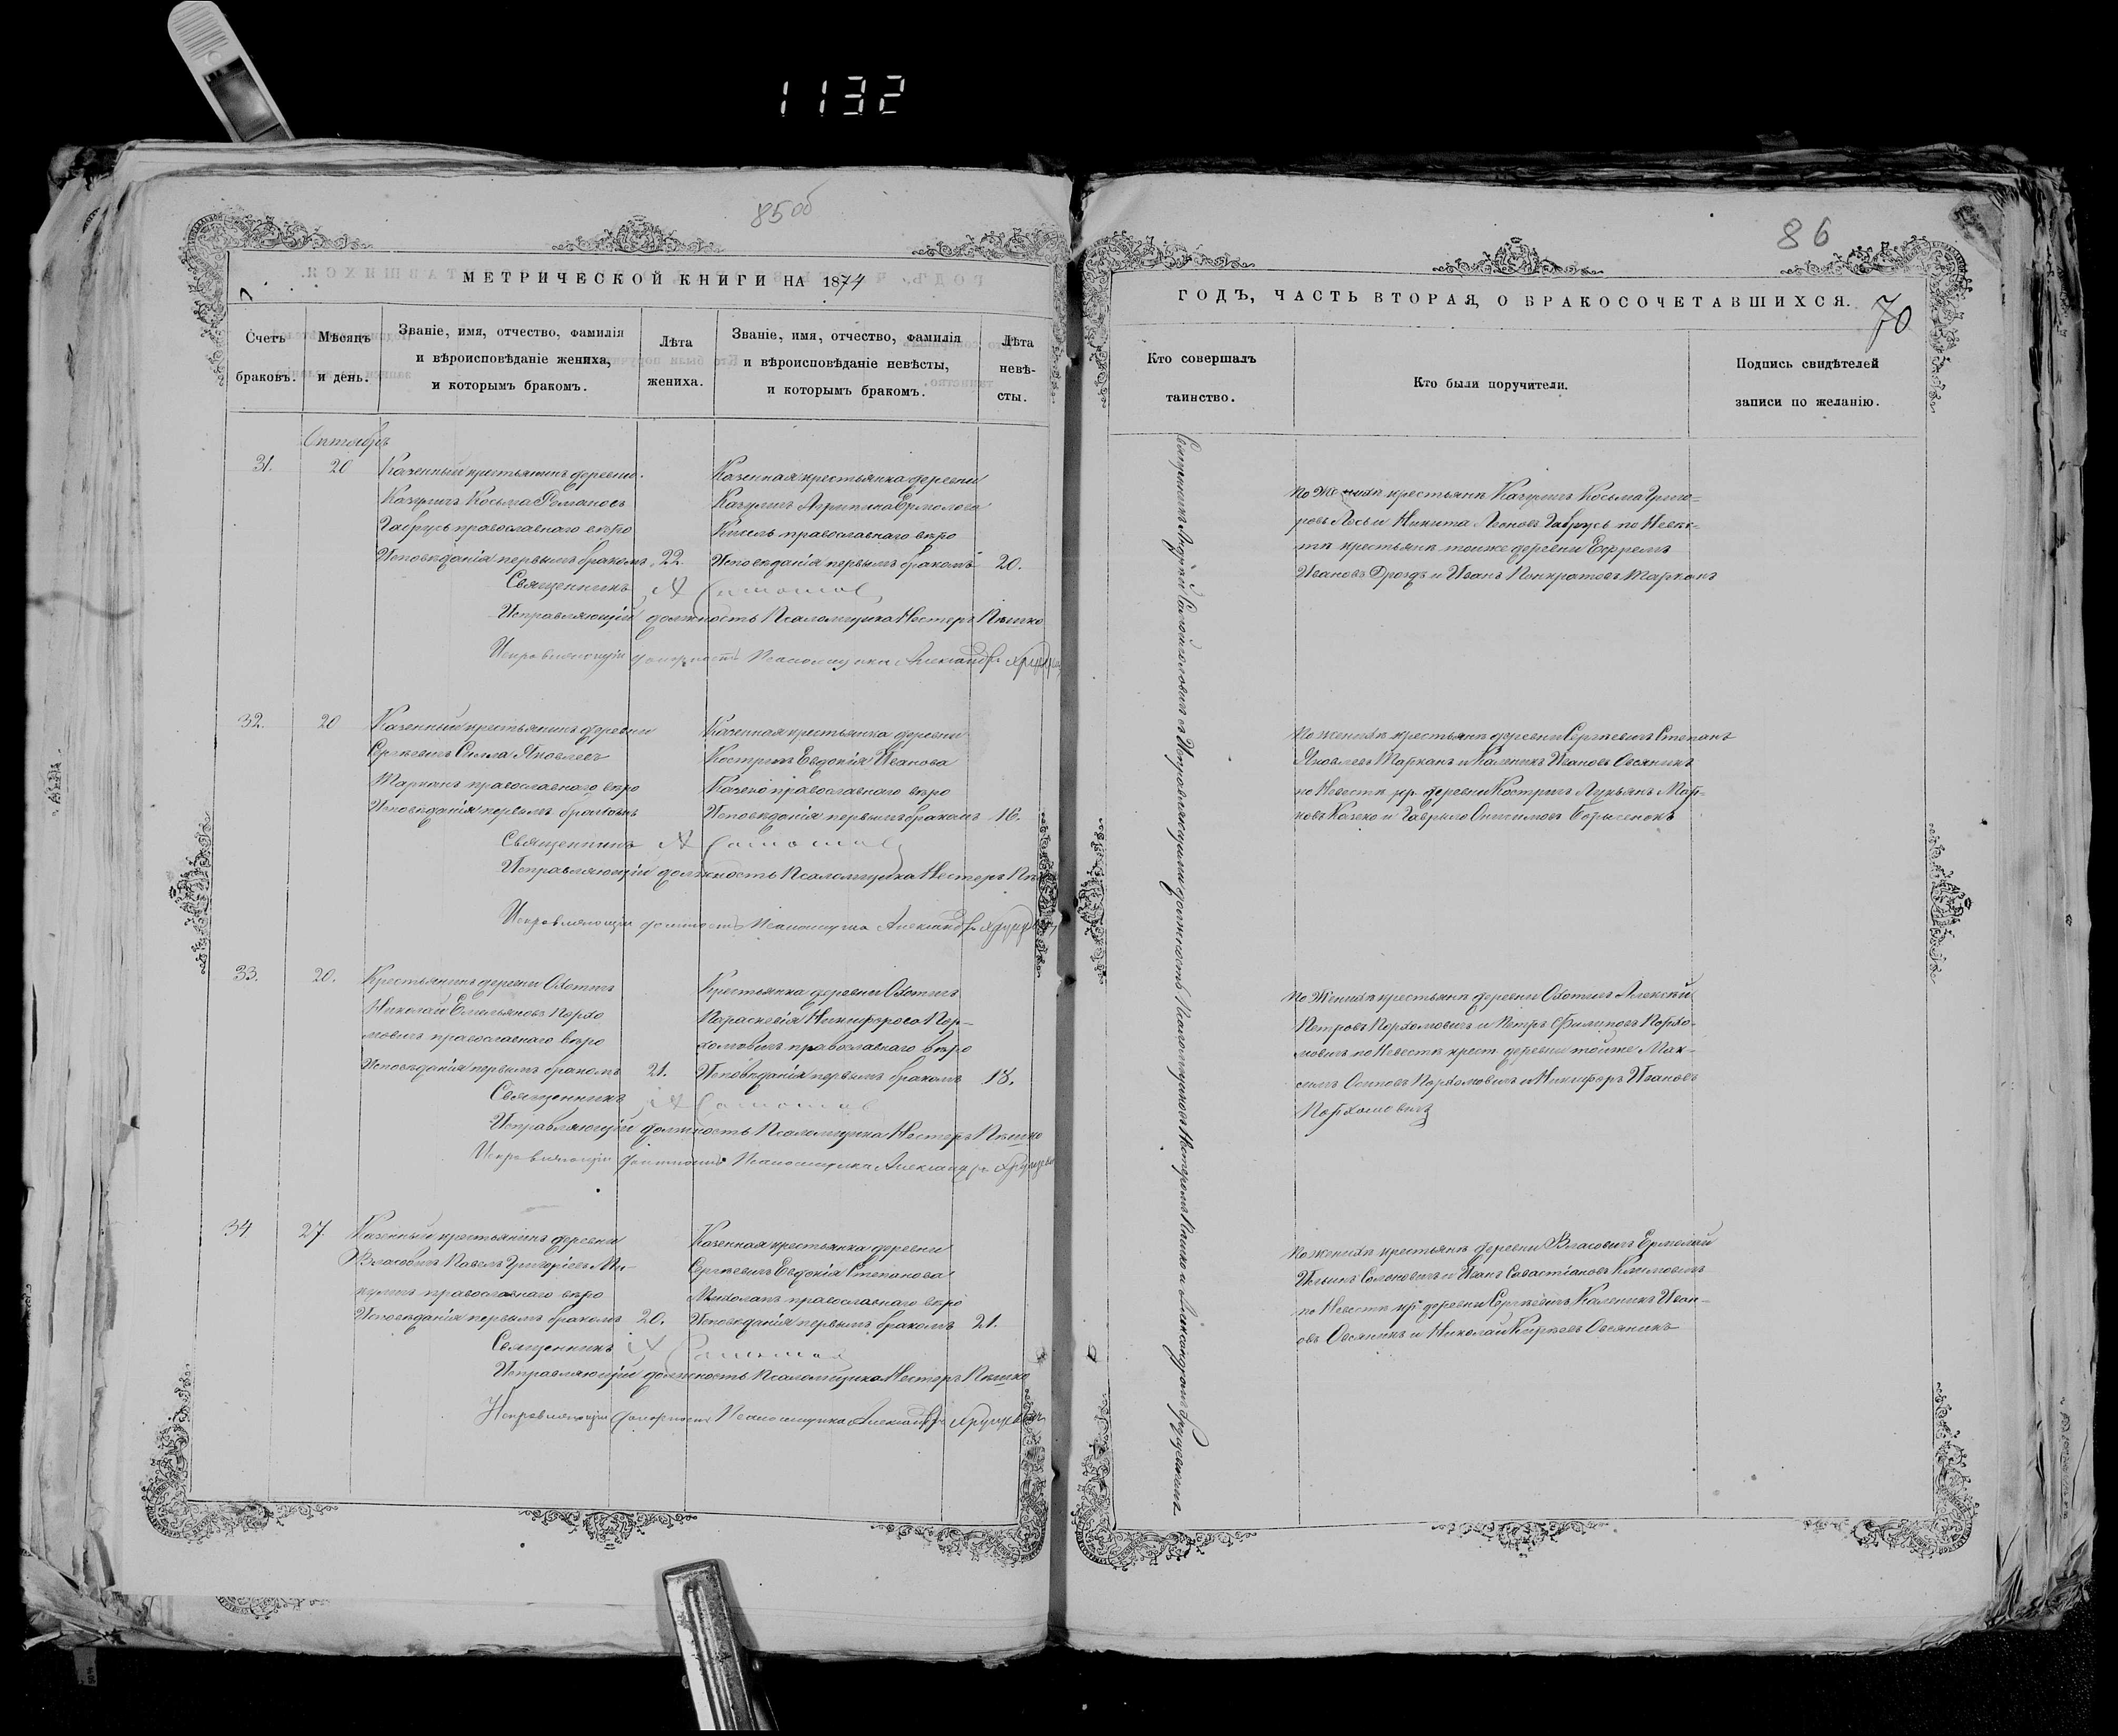 1132
85 об
МЕТРИЧЕСКОЙ КНИГИ НА 1874
Счетъ браковъ.
Мѣсяцъ и день.
Званіе, имя, отчество, фамилія
и вѣроисповѣданіе жениха,
и которымъ бракомъ.
Лѣта
жениха.
Званіе, имя, отчество, фамилія
и вѣроисповѣданіе невѣсты,
и которымъ бракомъ.
Лѣта
невѣ-
сты.
Октябрь
31.
20
Казенный крестьянинъ деревни
Казуличъ Косьма Романовъ
Гаврусь православнаго вѣро
Исповѣданія первымъ бракомъ
22.
Казенная крестьянка деревни
Казуличъ Агрипина Ермолова
Кисель православнаго вѣро
Исповѣданія первымъ бракомъ
20.
Священникъ А
Исправляющій должность Псаломщика Нестеръ Пышко
Исправляющій должность Псаломщика Александръ
32.
20
Казенный крестьянинъ деревни
Сергѣевичъ Сила Яковлевъ
Марканъ православнаго вѣро
Исповѣданія первымъ бракомъ
Казенная крестьянка деревни
Костричъ Евдокія Иванова
Казеко православнаго вѣро
Исповѣданія первымъ бракомъ
16.
Священникъ А
Исправляющій должность Псаломщика Нестеръ
Исправляющій должность Псаломщика Александръ
33.
20.
Крестьянинъ деревни Охотичъ
Николай Емельяновъ Пархо
мовичъ православнаго вѣро
Исповѣданія первымъ бракомъ
21.
Крестьянка деревни Охотичъ
Параскевія Никифорова Пар-
хомовичъ православнаго вѣро
Исповѣданія первымъ бракомъ
18.
Священникъ А
Исправляющій должность Псаломщика Нестеръ Пышко
Исправляющій должность Псаломщика Александръ
34
27.
Казенный крестьянинъ деревни
Власовичъ Павелъ Григоріевъ Ми-
куличъ православнаго вѣро
Исповѣданія первымъ бракомъ
20.
Казенная крестьянка деревни
Сергѣевичъ Евдокія Степанова
Михолапъ православнаго вѣро
Исповѣданія первымъ бракомъ
21.
Священникъ А
Исправляющій должность Псаломщика Нестеръ Пышко
Исправляющій должность Псаломщика Александръ
86
70
ГОДЪ, ЧАСТЬ ВТОРАЯ, О БРАКОСОЧЕТАВШИХСЯ.
Кто совершалъ
таинство.
Кто были поручители.
Подпись свидѣтелей
записи по желанію.
Священникъ Андрей съ Исправляющими должность Псаломщиковъ Нестеромъ Пышко и Александромъ
по Женихѣ крестьяне Казуличъ Косьма Григо-
ровъ Лось и Никита Леоновъ Гаврусь по Невѣс-
тѣ крестьяне тойже деревни Ефремъ
Ивановъ Дроздъ и Иванъ Панкратовъ Марканъ
по женихѣ крестьяне деревни Сергѣевичъ Степанъ
Яковлевъ Марканъ и Каленикъ Ивановъ Овсяникъ
по Невестѣ кр. деревни Костричъ Лукьянъ Мар-
ковъ Казеко и Гаврыло Онисимовъ
по Женихѣ крестьяне деревни Охотичъ Алексѣй
Петровъ Пархомовичъ и Петръ Филиповъ Пархо-
мовичъ по Невестѣ крест. деревни тойже Мак-
симъ Осиповъ Пархомовичъ и Никифоръ Ивановъ
Пархомовичъ
по женихѣ крестьяне деревни Власовичъ Ермолай
Ильинъ Самоновичъ и Иванъ Савастіановъ Климовичъ
по Невестѣ кр. деревни Сергѣевичъ Каленикъ Иван-
овъ Овсяникъ и Николай Кирѣевъ Овсяникъ